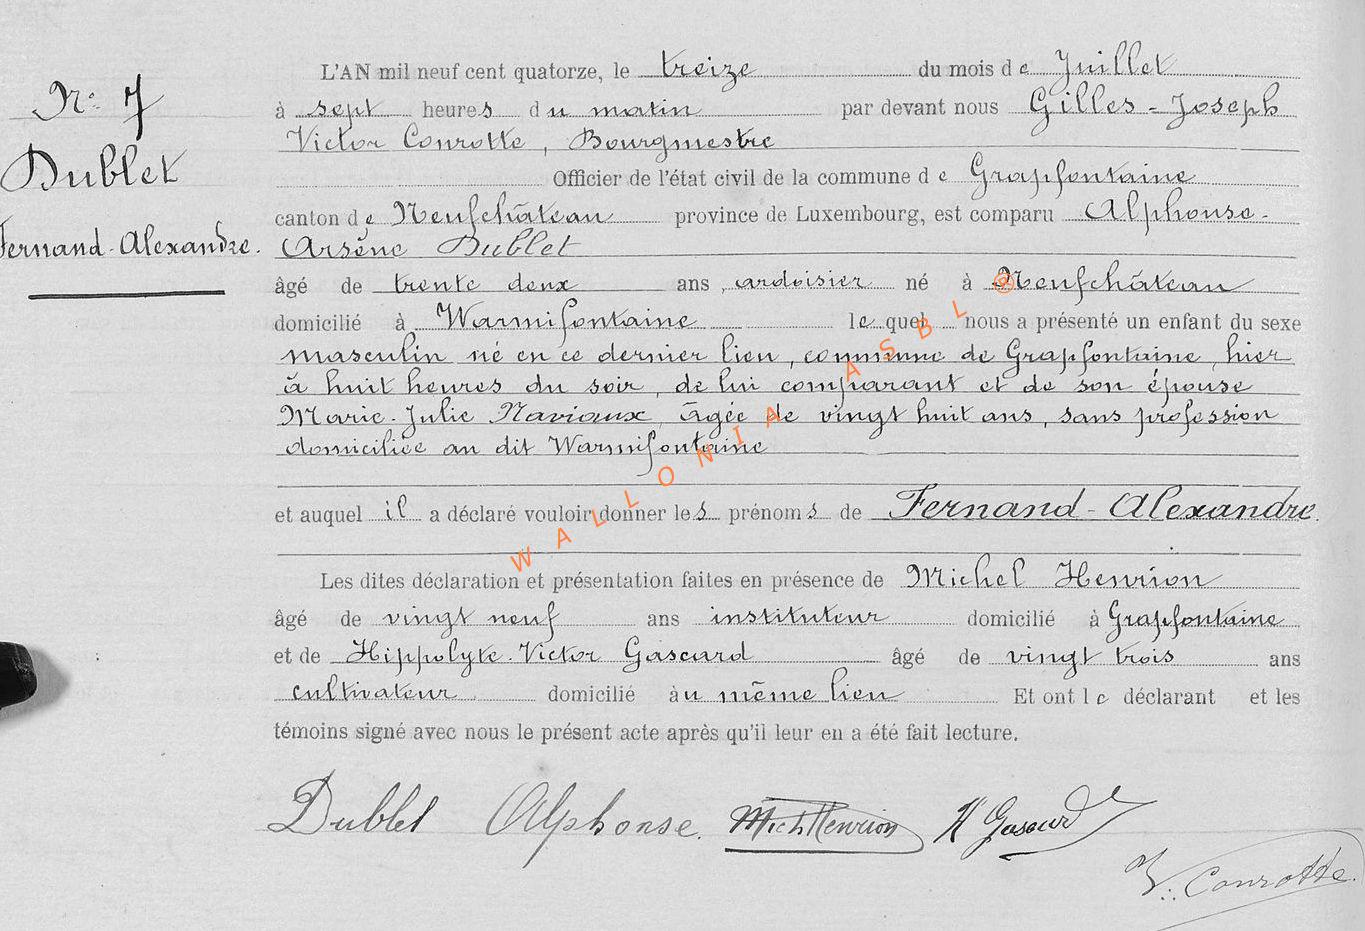 N° 7
Dublet
Fernand-Alexandre.
L'AN mil neuf cent quatorze, le treize du mois de Juillet
à sept heures du matin par devant nous Gilles-Joseph
Victor Conrotte, Bourgmestre
Officier de l'état civil de la commune de Grapfontaine
canton de Neufchâteau province de Luxembourg, est comparu Alphonse-
Arsène Dublet
âgé de trente deux ans, ardoisier né à Neufchâteau
domicilié à Warmifontaine lequel nous a présenté un enfant du sexe
masculin né en ce dernier lieu, commune de Grapfontaine, hier
à huit heures du soir, de lui comparant et de son épouse
Marie-Julie Naviaux, âgée de vingt huit ans, sans profession
domiciliée au dit Warmifontaine
et auquel il a déclaré vouloir donner les prénoms de Fernand-Alexandre.
Les dites déclaration et présentation faites en présence de Michel Henrion
âgé de vingt neuf ans instituteur domicilié à Grapfontaine
et de Hippolyte-Victor Gascard âgé de vingt trois ans
cultivateur domicilié au même lieu Et ont le déclarant et les
témoins signé avec nous le présent acte après qu'il leur en a été fait lecture.
Dublet Alphonse. Mich Henrion H Gascard
V. Conrotte.
WALLONIA ASBL ©